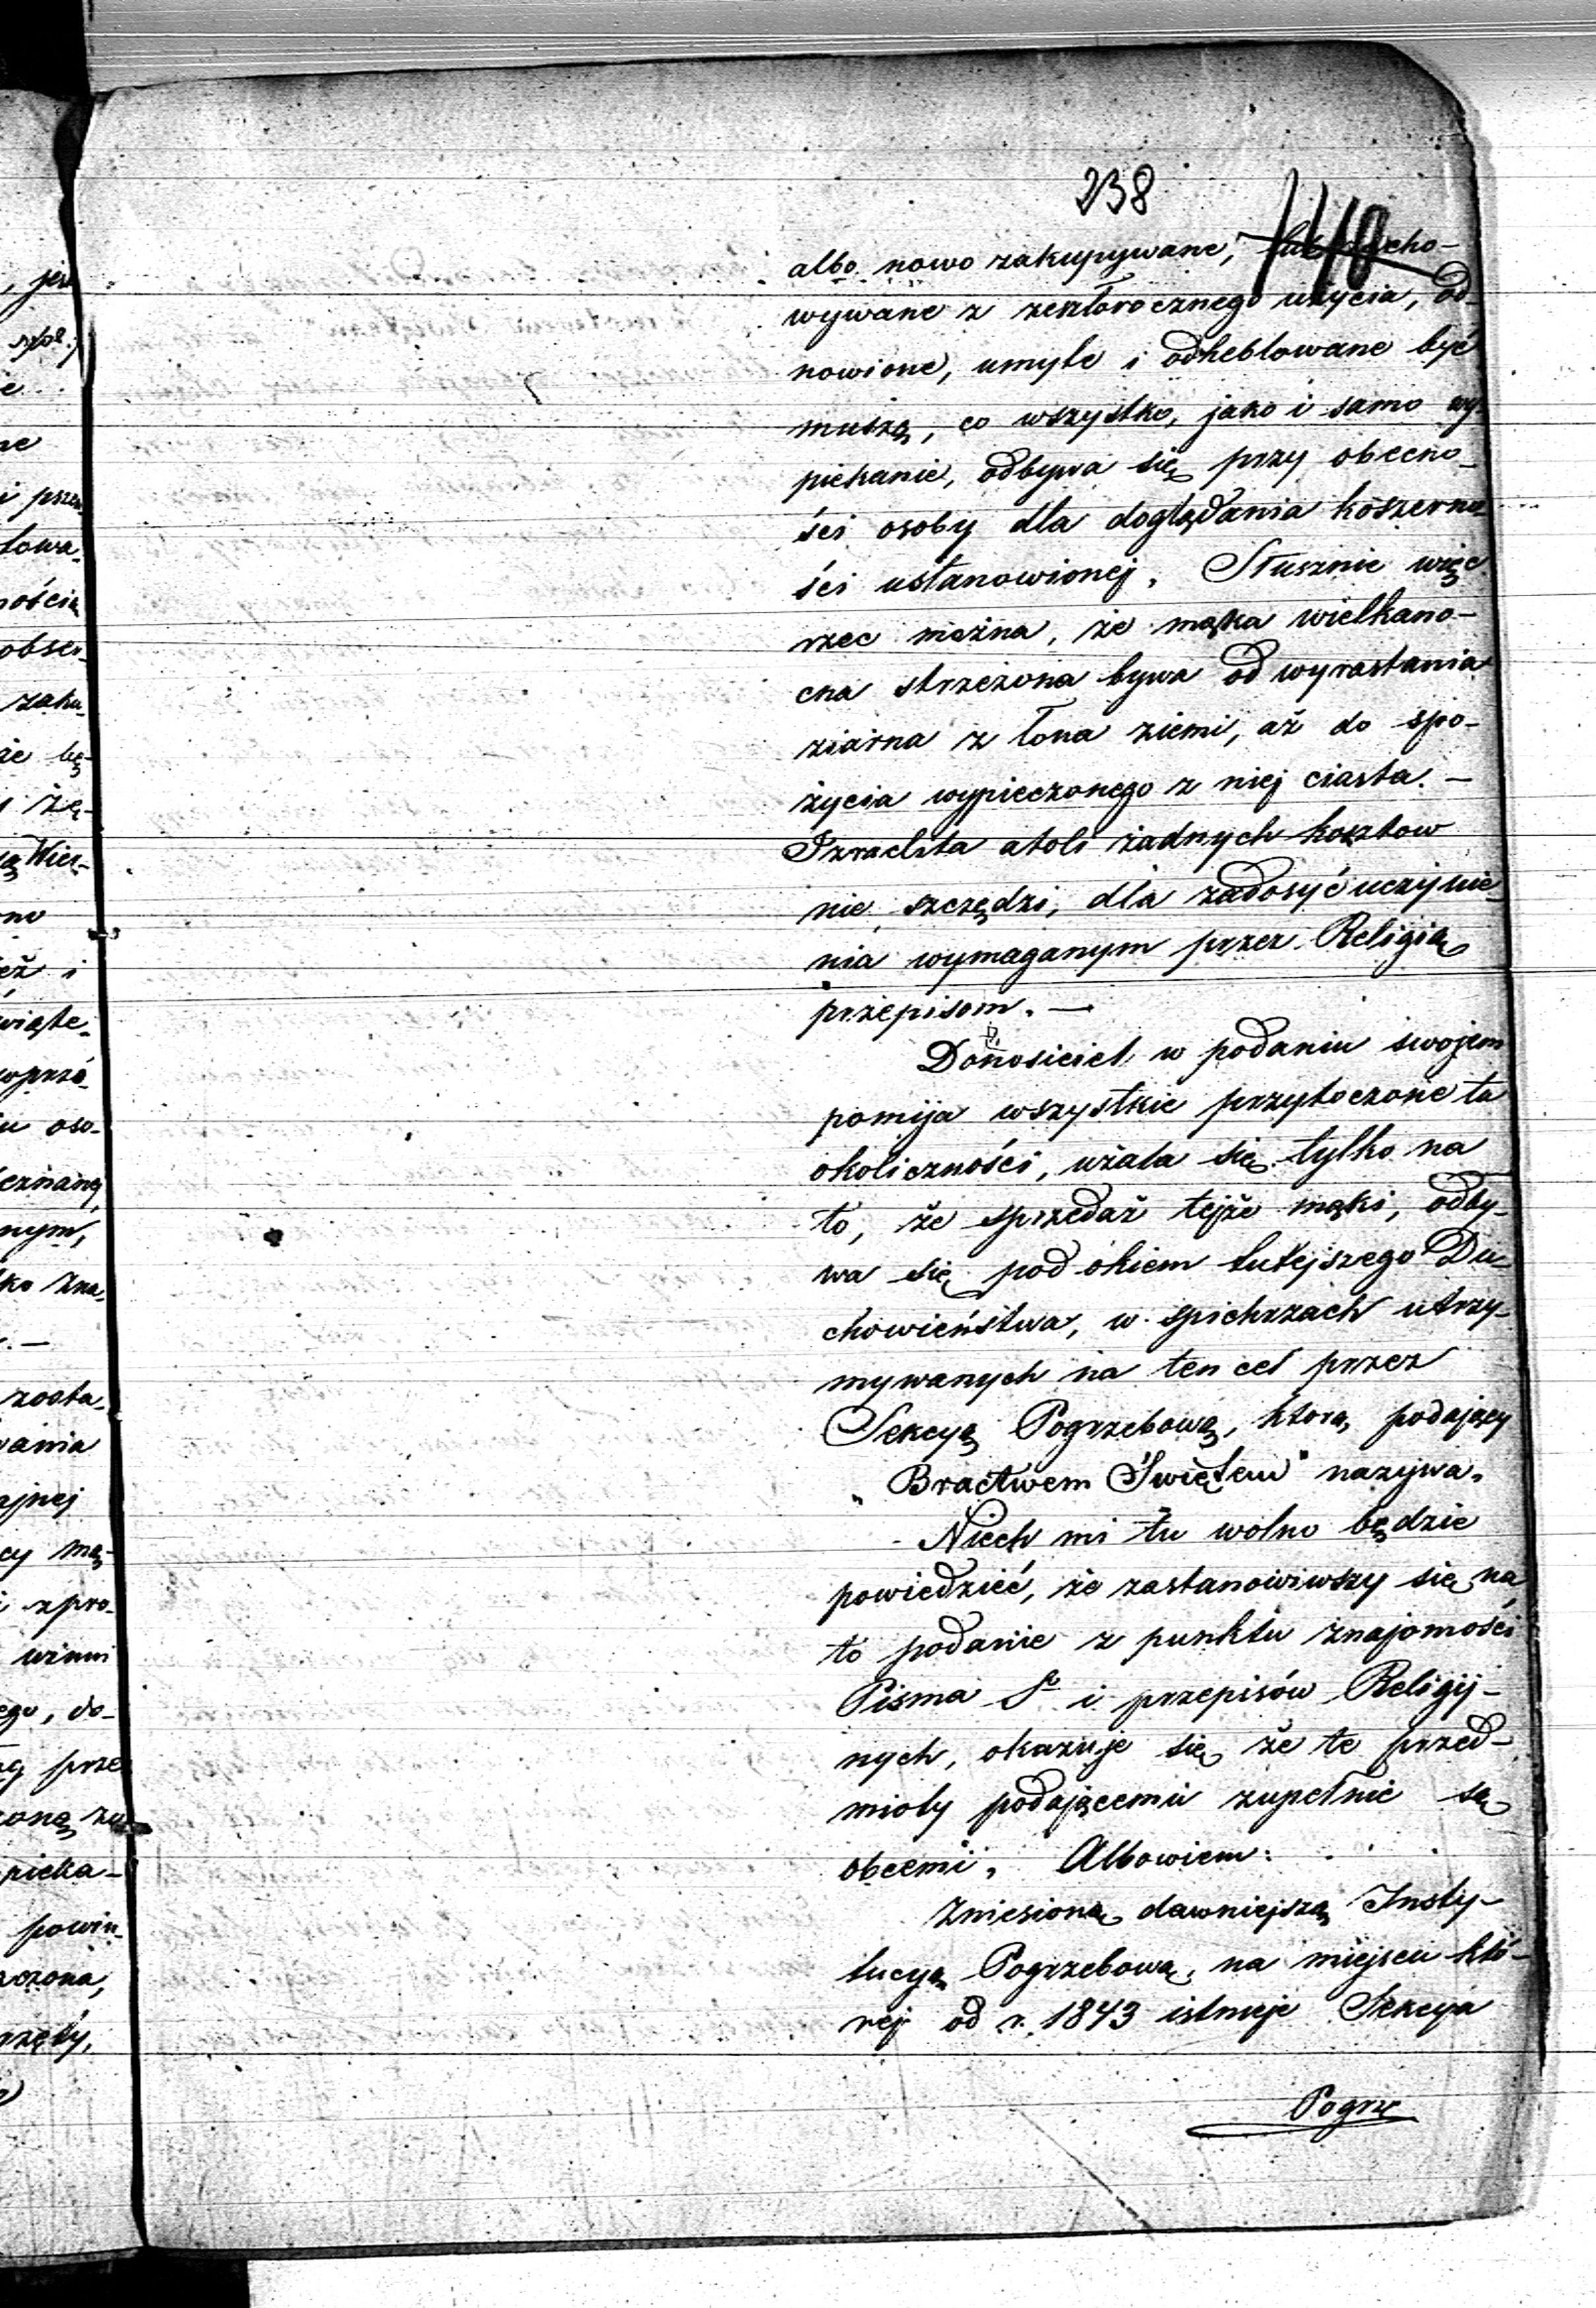 238
140
albo nowo zakupywane, lub zacho-
wywane z zeszłorocznego użycia, od-
nowione, umyte i odheblowane być
muszą, co wszystko, jako i samo wy-
piekanie, odbywa się przy obecno-
ści osoby dla doglądania koszerno-
ści ustanowionej. Słusznie więc
rzec można, że mąka wielkano-
cna strzeżona bywa od wyrastania
ziarna z łona ziemi, aż do spo-
życia wypieczonego z niej ciasta. —
Izraelita atoli żadnych kosztow
nie szczędzi, dla zadosyć uczynie-
nia wymaganym przez Religią
przepisom. —
Donosiciel w podaniu swojem
pomija wszystkie przytoczone tu
okoliczności, użala się tylko na
to, że sprzedaż tejże mąki, odby-
wa się pod okiem tutejszego Du-
chowieństwa, w spichrzach utrzy-
mywanych na ten cel przez
Sekcyą Pogrzebową, którą podający
„Bractwem Świętem" nazywa.
Niech mi tu wolno będzie
powiedzieć, że zastanowiwszy się na
to podanie z punktu znajomości
Pisma Sº i przepisów Religij-
nych, okazuje się że te przed-
mioty podającemu zupełnie są
obcemi. Albowiem:
Zniesioną dawniejszą Insty-
tucyą Pogrzebową, na miejscu któ-
rej od r. 1843 istnieje Sekcya
Pogrze
, jes
ie
ne
i prze
towa-
nością
obser-
zaku-
że bę-
i żę-
są Wier-
no
eż i
wiąte-
woprzó-
iu oso-
czнaną,
nym,
ko zna-
. —
zosta-
wania
ajnej
cy mą-
i spro-
winni
ego, do-
ąg prze
oną za
pieka-
powin-
czona,
rzęty,